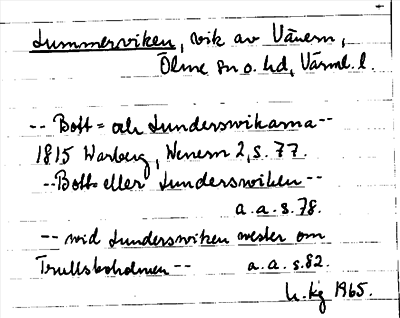 Lummerviken, vik av Vänern,
Ölme sn o. hd, Värml. l.
-- Bott- och Lunderswikarna --
1815 Warberg, Wenern 2, s. 77.
-- Bott- eller Lunderswiken --
a. a. s. 78.
-- wid Lunderswiken wester om
Trullsboholmen -- a. a. s. 82.
1965.